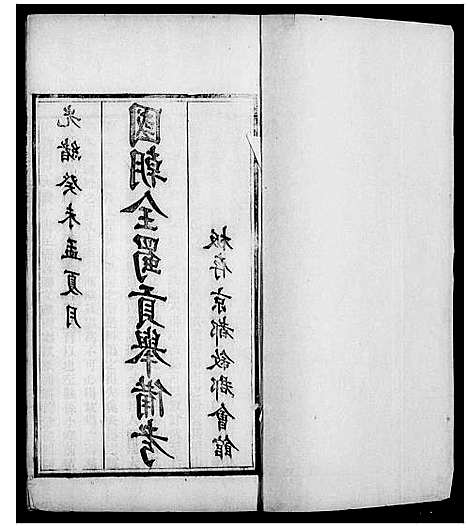 光緒癸未孟夏月
國朝全蜀貢舉備考
板存京都敘郡會館